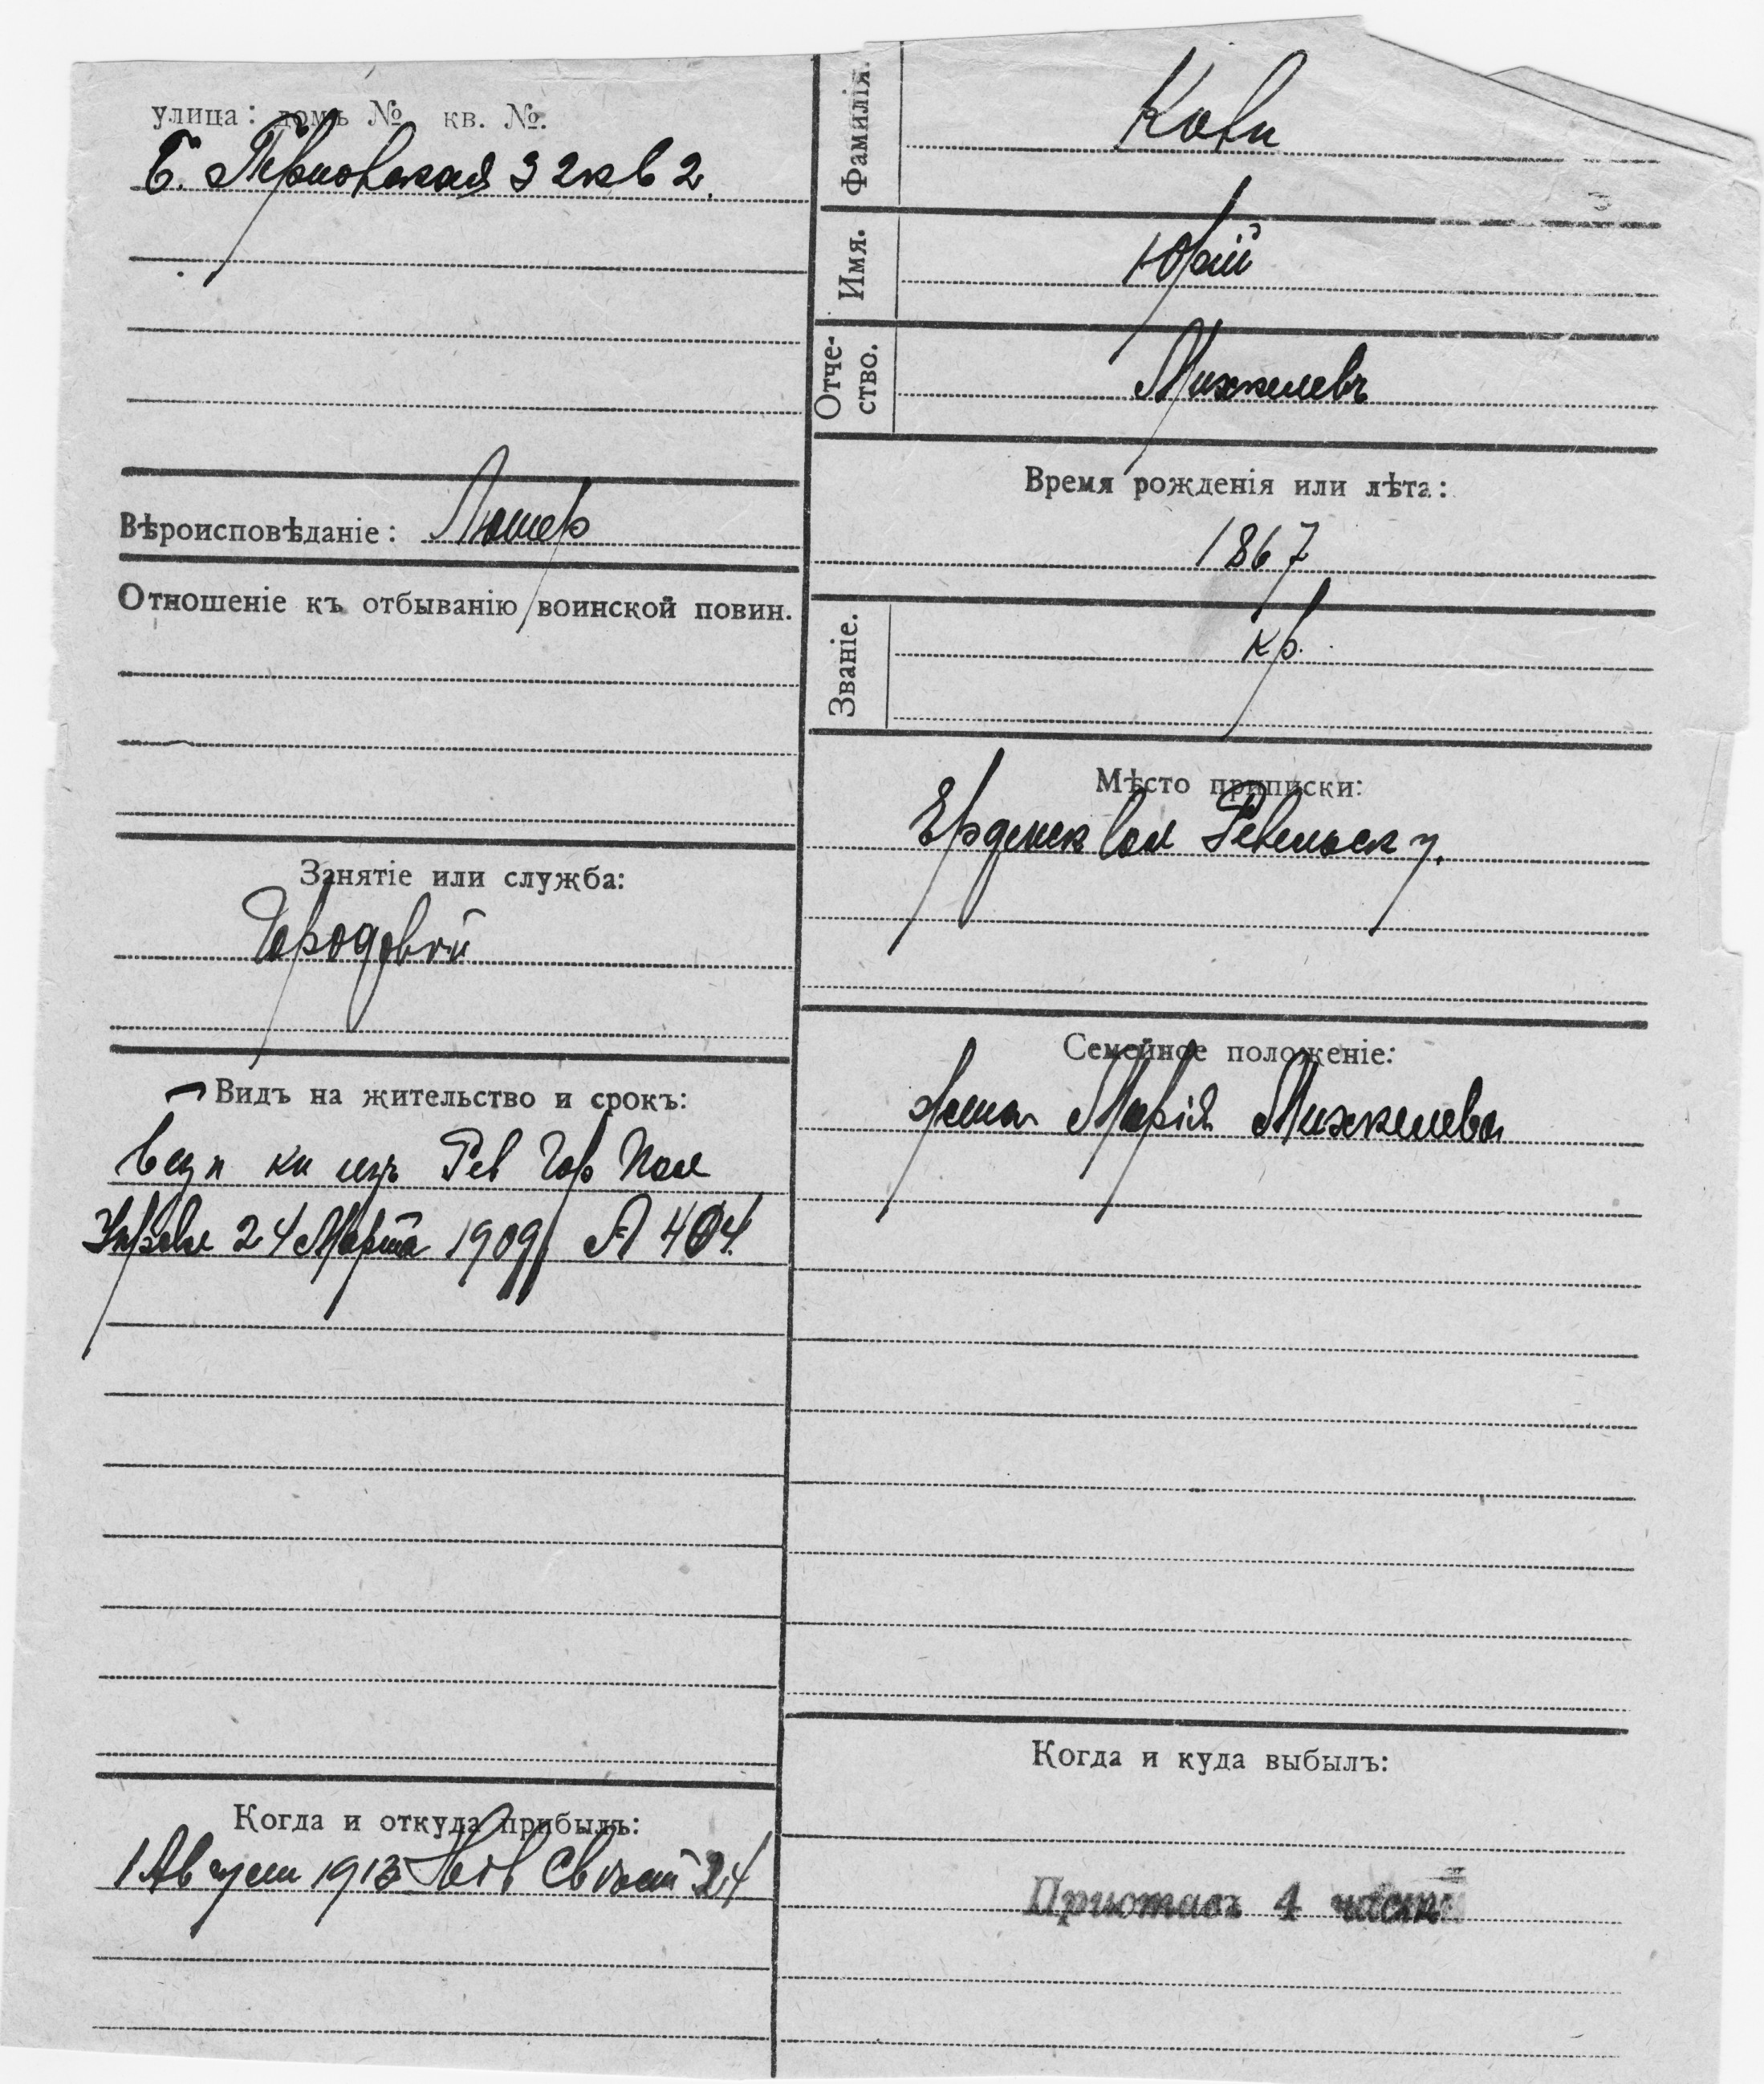 улица: домъ № кв. №.
Б. Перновская 32 кв 2.
Вѣроисповѣданіе: Лютер
Отношеніе къ отбыванію воинской повин.
Занятіе или служба:
Городовой
Видъ на жительство и срокъ:
кн изъ Рев Гор Пол
Управл 24 Марта 1909 № 404.
Когда и откуда прибылъ:
1 Август 1913 24
Фамилія.
Имя. Юрій
Отче-
ство. Михкелевъ
Время рожденія или лѣта:
1867
Званіе. кр.
Мѣсто приписки:
вол Ревельск у.
Семейное положеніе:
жена Марія Михкелева
Когда и куда выбылъ:
Приставъ 4 части